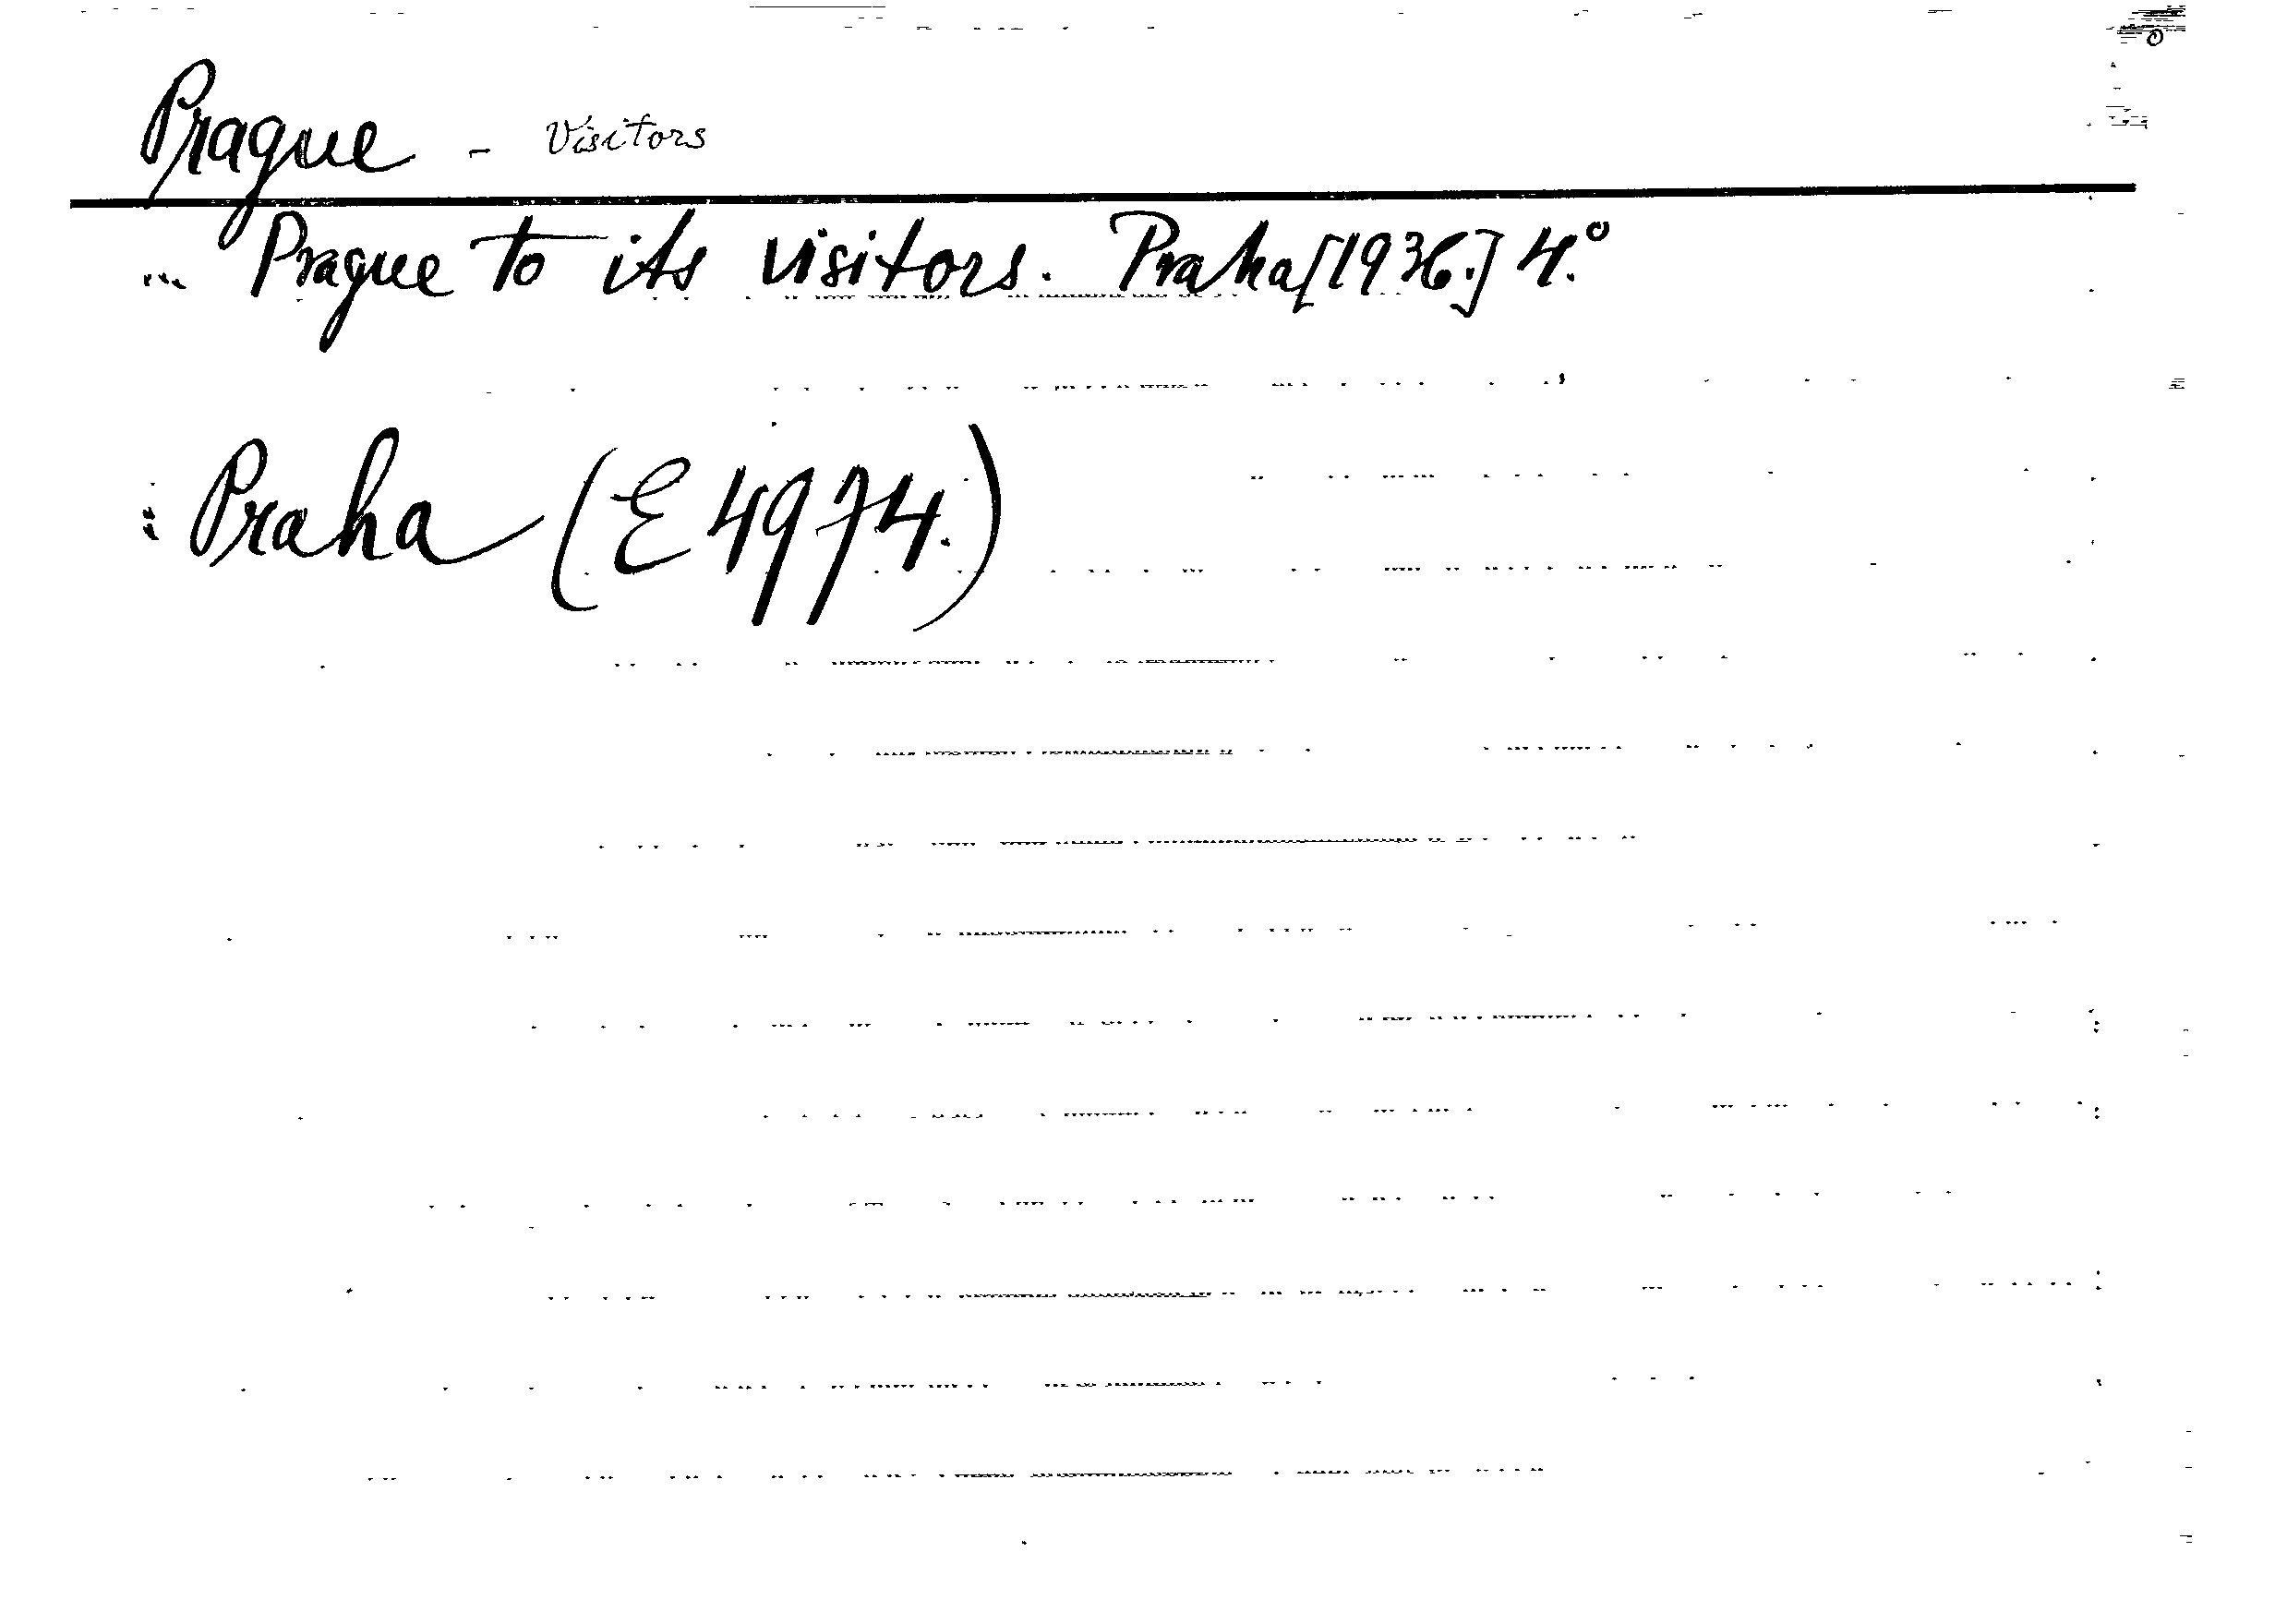 Prague - Visitors
... Prague to its visitors. Praha [1936.] 4.°
: Praha (E 4974.)